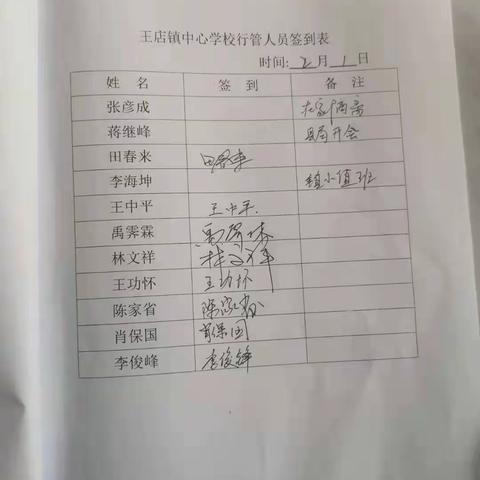 王店镇中心学校行管人员签到表
时间: 2月1日
姓 名 签 到 备 注
张彦成
蒋继峰 县局开会
田春来 田春来
李海坤 镇小值班
王中平 王中平
禹霁霖
林文祥 林文祥
王功怀 王功怀
陈家省 陈家省
肖保国 肖保国
李俊峰 李俊峰